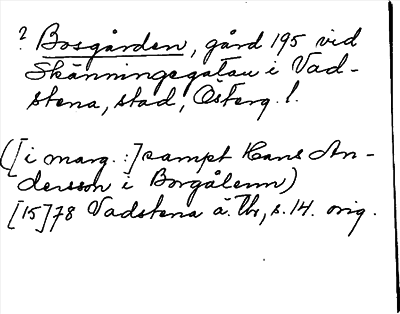 ? Bosgården, gård 195 vid
Skänningegatan i Vad-
stena, stad, Österg. l.
([i marg.:] sampt Hans An-
dersson i Borgålenn)
[15]78 Vadstena ä. Tb, s. 14. orig.